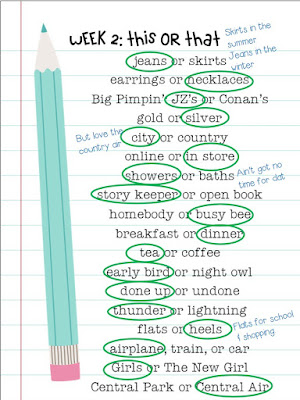 WEEK 2: this OR that
Skirts in the
summer
Jeans in the
winter
jeans or skirts
earrings or necklaces
Big Pimpin' JZ's or Conan's
gold or silver
But love the
country air
city or country
online or in store
showers or baths
Ain't got no
time for dat
story keeper or open book
homebody or busy bee
breakfast or dinner
tea or coffee
early bird or night owl
done up or undone
thunder or lightning
flats or heels
Flats for school
& shopping
airplane, train, or car
Girls or The New Girl
Central Park or Central Air